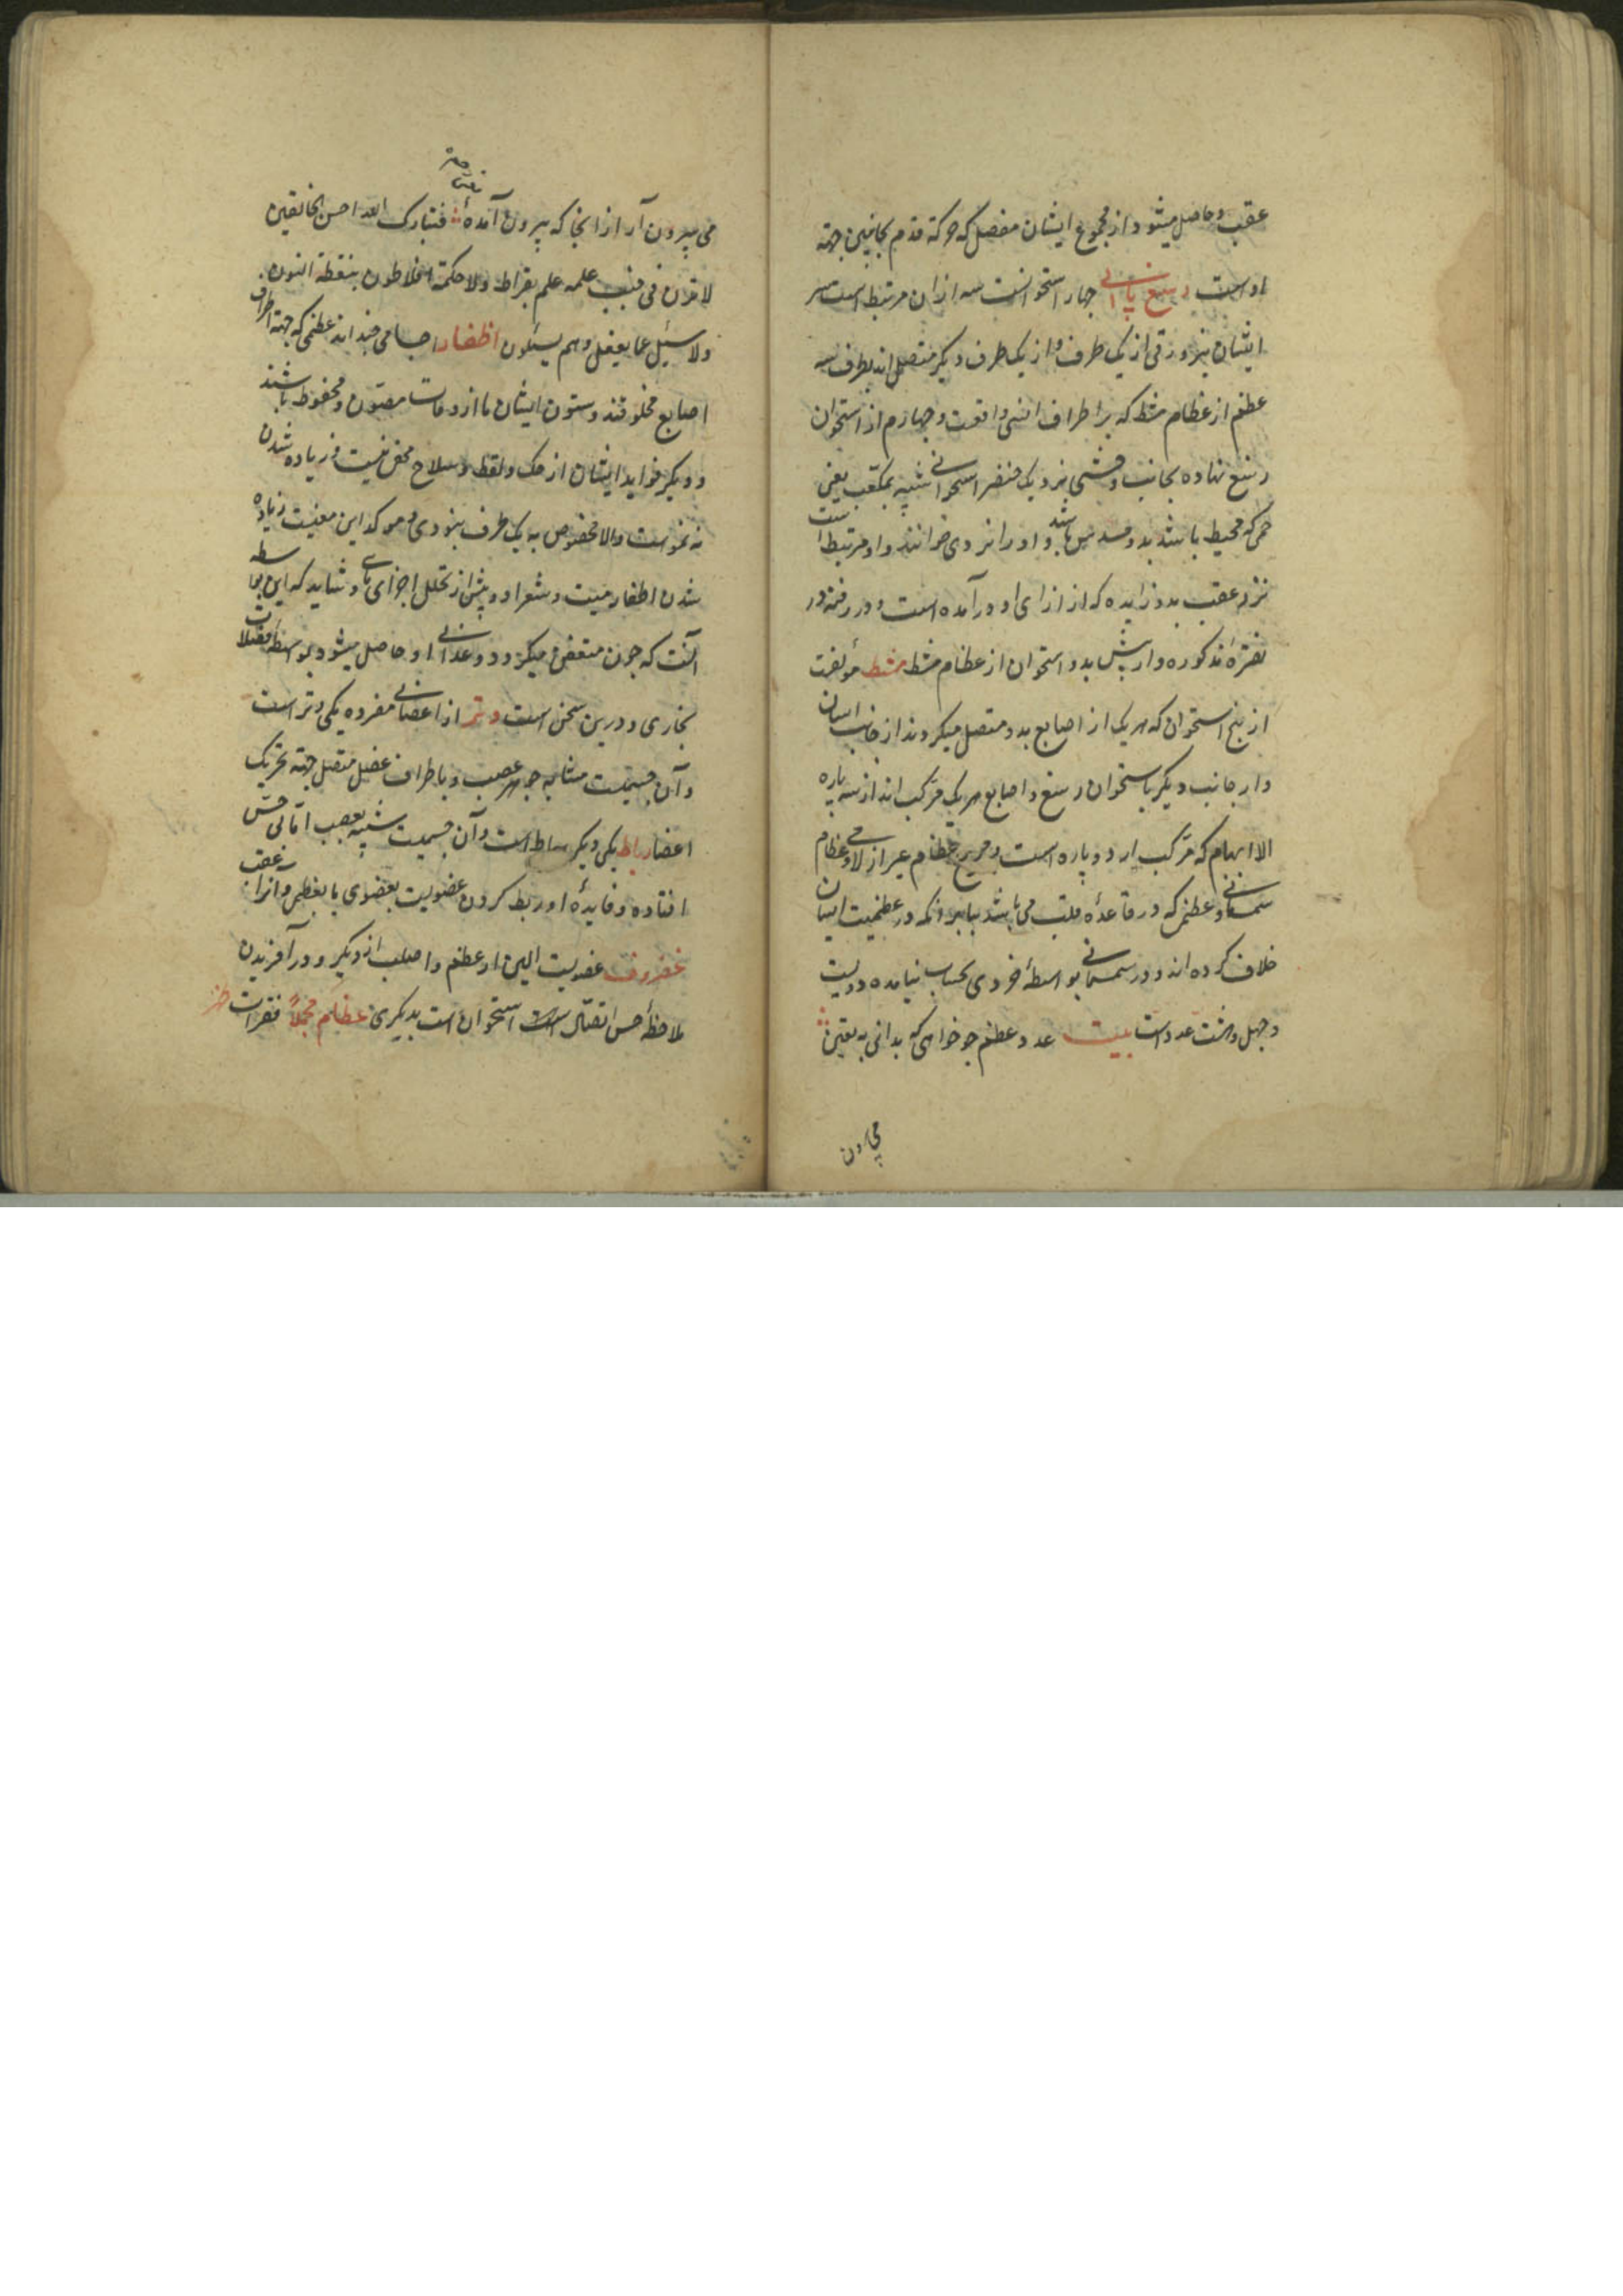 عقب و حاصل میشود از مجموع ایشان مفصلی که حرکة قدم بجانبین جهة
اوست رسغ پای جهار استخوانست سه ازان مرتبط است بسر
ایشان بزورقی از یک طرف و از یک طرف دیکر متصل اند بطرف سه
عظم از عظام مشط که بر اطراف انسی واقعست و چهارم از استخوان
رسغ نهاده بجانب وحشی نزدیک خنصر استخوانی شبیه بمکعب یعنی
که محیط باشد بدو مسدس باشد و او را نردی خوانند و او مرتبط است
نزد عقب بدو زایده که از ازای او درآمده است و در رفته در
نقرهٔ مذکوره و از پیش بدو استخوان از عظام مشط مشط مؤلفست
از پنج استخوان که هر یک از اصابع بدو متصل میکردند از جانب ایشان
و از جانب دیکر باستخوان رسغ و اصابع هر یک مرکب اند از سه پاره
الا ابهام که مرکب از دو پاره است و جمیع عظام غیر از لامی و عظام
سمسانی و عظمی که در قاعدهٔ قلب می باشد بنابر انکه در عظمیت ایشان
خلاف کرده اند و در سمسمانی بواسطهٔ خردی بحساب نیامده دویست
و چهل و هشت عدد است بیت عدد عظم جو خواهی که بدانی به یقین
می بیرون
می بیرون آر از انجا که بیرون آمدهٔ فتبارک الله احسن الخالقین
لا قرن فی جنب علمه علم بقراط ولا حکمة افلاطون بنقطة النون
ولا یسئل عما یفعل وهم یسئلون اظفار اجسامی چند اند عظمی که جهة اطراف
اصابع مخلوقند و ستون ایشان تا از وهات مصون و محفوظ باشند
و دیکر فواید ایشان از حک و لقط و سلاح مخفی نیست و زیاده شدن
نه نموست والا مخصوص به یک طرف نبودی همو که این معنیست زیاده
شدن اظفار میت و شعر او و پیش از تحلل اجزای باقی و شاید که این بواسطه
آنست که جون متعفن میکردد و غذایی او حاصل میشود بواسطه فضلات
بخاری و درین سخن است وتر از اعضای مفرده یکی وتر است
و آن جسمیست مشابه جوهر عصب و باطراف عضل متصل جهة تحریک
اعضا رباط یکی دیکر رباط است و آن جسمیست شبیه بعصب اما بی حس
افتاده و فایدهٔ او ربط کردن عضویست بعضوی یا بعظمی و انرا عقب
غضروف عضویست الین از عظم و اصلب از دیکر و در آفریدن
ملاحظهٔ حسن اتصال است استخوان است بدیکری عظام مجملاً فقرات